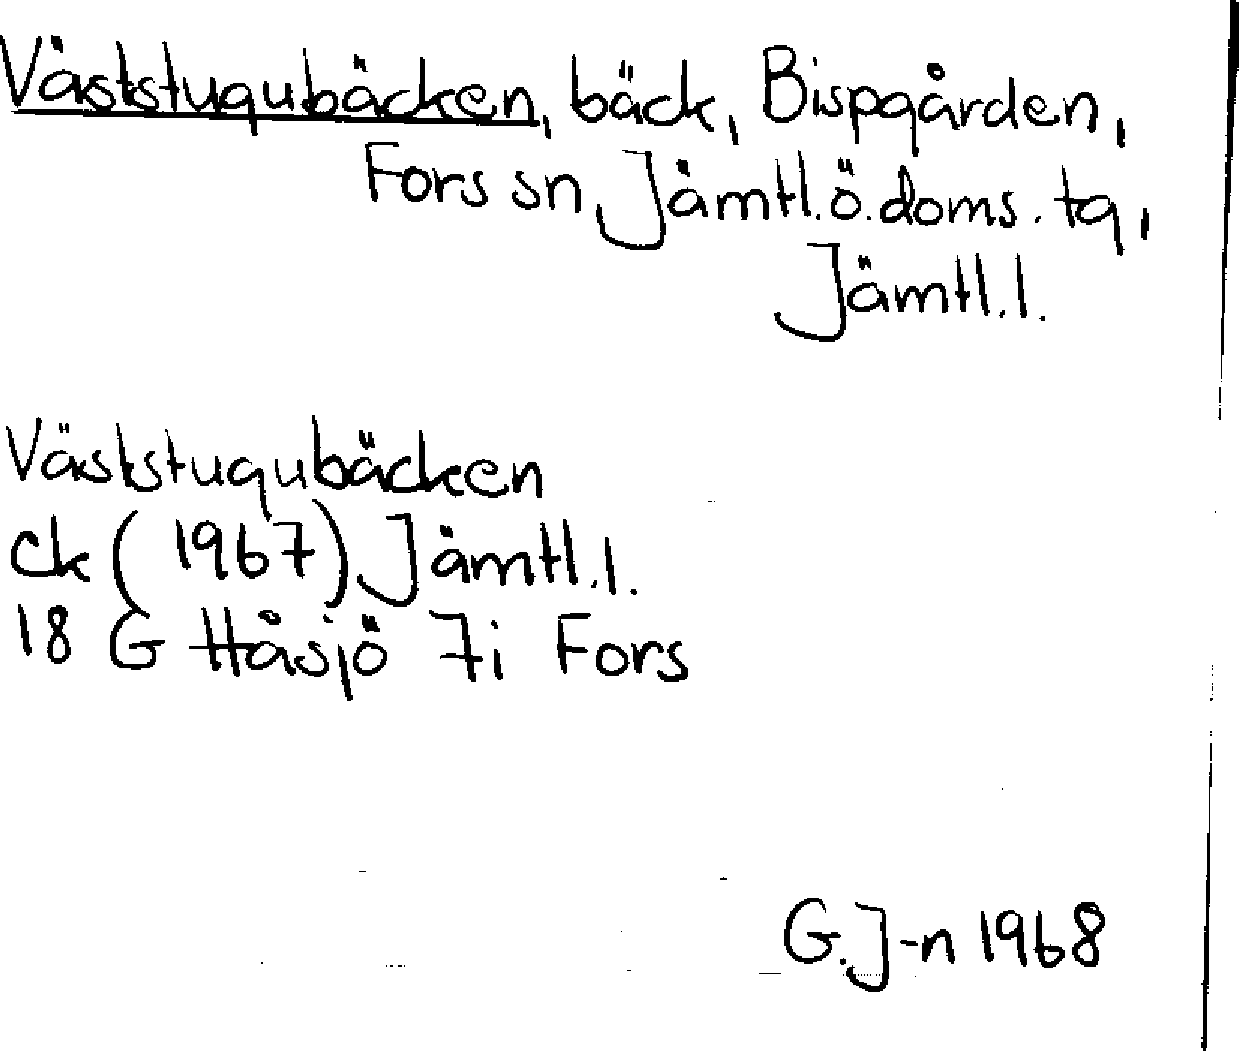 Väststugubäcken, bäck, Bispgården,
Fors sn, Jämtl.ö.doms.tg,
Jämtl.l.
Väststugubäcken
Ek (1967) Jämtl.l.
18 G Håsjö 7i Fors
G.J-n 1968